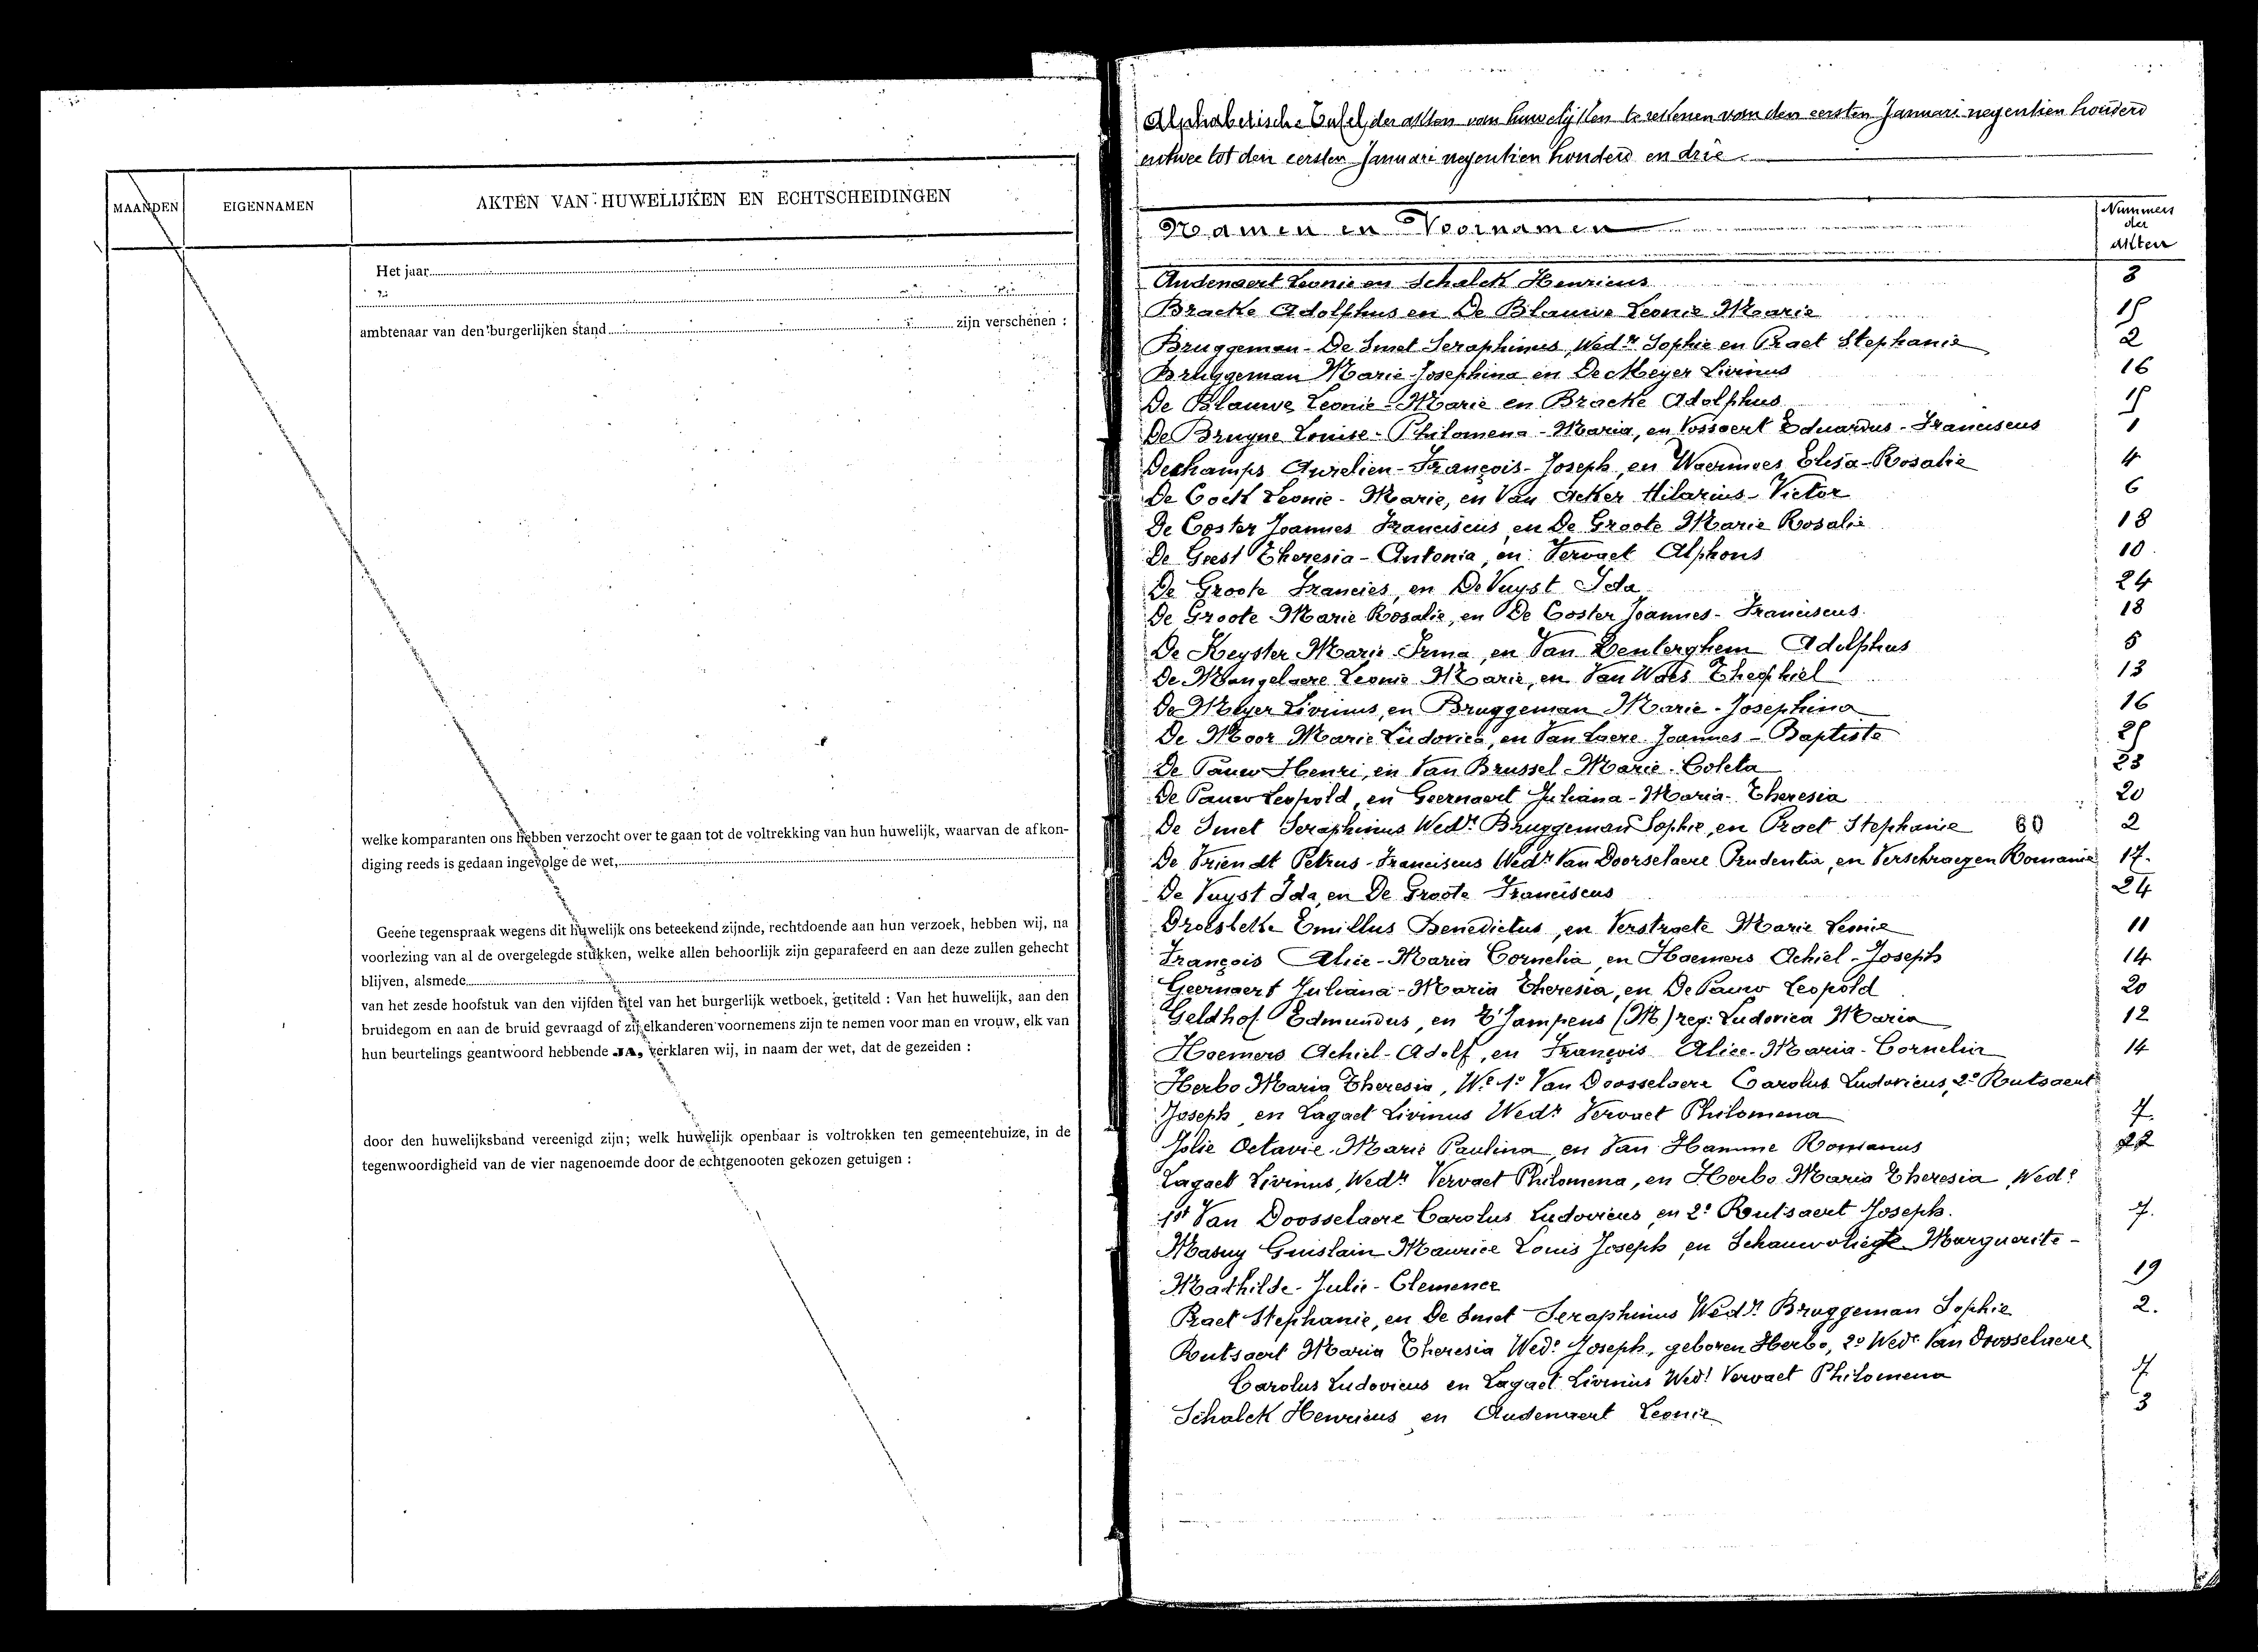 MAANDEN
EIGENNAMEN
AKTEN VAN HUWELIJKEN EN ECHTSCHEIDINGEN
Het jaar
ambtenaar van den burgerlijken stand zijn verschenen :
welke komparanten ons hebben verzocht over te gaan tot de voltrekking van hun huwelijk, waarvan de afkon-
diging reeds is gedaan ingevolge de wet,
Geene tegenspraak wegens dit huwelijk ons beteekend zijnde, rechtdoende aan hun verzoek, hebben wij, na
voorlezing van al de overgelegde stukken, welke allen behoorlijk zijn geparafeerd en aan deze zullen gehecht
blijven, alsmede
van het zesde hoofstuk van den vijfden titel van het burgerlijk wetboek, getiteld : Van het huwelijk, aan den
bruidegom en aan de bruid gevraagd of zij elkanderen voornemens zijn te nemen voor man en vrouw, elk van
hun beurtelings geantwoord hebbende JA, verklaren wij, in naam der wet, dat de gezeiden :
door den huwelijksband vereenigd zijn; welk huwelijk openbaar is voltrokken ten gemeentehuize, in de
tegenwoordigheid van de vier nagenoemde door de echtgenooten gekozen getuigen :
Alphabetische Tafel der akten van huwelijken te rekenen van den eersten Januari negentien honderd
entwee tot den eersten Januari negentien honderd en drie
Namen en Voornamen
Nummers
der
akten
Audenaert Leonie en Schalck Henricus 3
Bracke Adolphus en De Blauwe Leonie Marie 15
Bruggeman - De Smet Seraphinus, Wedr Sophie en Praet Stephanie 2
Bruggeman Marie-Josephina en De Meyer Livinus 16
De Blauwe Leonie-Marie en Bracke Adolphus 15
De Bruyne Louise-Philomena-Maria, en Vossaert Eduardus-Franciscus 1
Dechamps Aurelien-François-Joseph, en Waeruwes Elisa-Rosalie 4
De Cock Leonie-Marie, en Van Acker Hilarius-Victor 6
De Coster Joannes Franciscus, en De Groote Marie Rosalie 18
De Geest Theresia-Antonia, en Vervaet Alphons 10
De Groote Francies, en De Vuyst Ida 24
De Groote Marie Rosalie, en De Coster Joannes-Franciscus 18
De Keyster Marie-Irma, en Van Renterghem Adolphus 5
De Mangelaere Leonie Marie, en Van Waes Theophiel 13
De Meyer Livinus, en Bruggeman Marie-Josephina 16
De Moor Marie Ludovica, en Van Laere Joannes-Baptiste 25
De Pauw Henri, en Van Brussel Marie-Coleta 23
De Pauw Leopold, en Geernaert Juliana-Maria-Theresia 20
De Smet Seraphinus Wedr Bruggeman Sophie, en Praet Stephanie 60 2
De Vriendt Petrus-Franciscus Wedr Van Doorselaere Prudentia, en Verschraegen Romanie 17.
De Vuyst Ida, en De Groote Franciscus 24
Droesbeke Emillus Benedictus, en Verstraete Marie Leonie 11
François Alice-Maria Cornelia, en Haemers Achiel-Joseph 14
Geernaert Juliana-Maria Theresia, en De Pauw Leopold 20
Geldhof Edmundus, en T'Jampens (M) reg: Ludovica Maria 12
Haemers Achiel-Adolf, en François Alice-Maria-Cornelia 14
Herbo Maria Theresia, We 1o Van Doosselaere Carolus Ludovicus, 2o Rutsaert
Joseph, en Lagaet Livinus Wedr Vervaet Philomena 7.
Jolie Octavie-Marie Paulina, en Van Hamme Romanus 22
Lagaet Livinus, Wedr Vervaet Philomena, en Herbo Maria Theresia, Wede
1st Van Doosselaere Carolus Ludovicus en 2o Rutsaert Joseph. 7.
Masuy Guislain Maurice Louis Joseph, en Schauvvliege Marguerite-
Mathilde-Julie-Clemence 19
Praet Stephanie, en De Smet Seraphinus Wedr Bruggeman Sophie 2.
Rutsaert Maria Theresia Wede Joseph, geboren Herbo, 2o Wede Van Doosselaere
Carolus Ludovicus en Lagaet Livinus Wedr Vervaet Philomena 7
Schalck Henricus en Audenaert Leonie 3